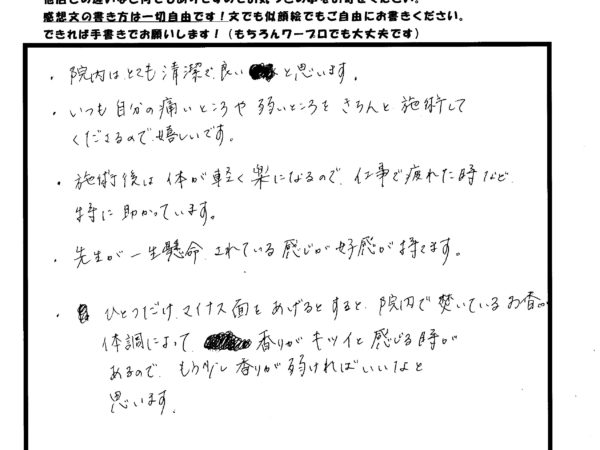 感想文の書き方は一切自由です！文でも似顔絵でもご自由にお書きください。
できれば手書きでお願いします！（もちろんワープロでも大丈夫です）
・院内はとても清潔で良いと思います。
・いつも自分の痛いところや弱いところをきちんと施術して
くださるので嬉しいです。
・施術後は体が軽く楽になるので、仕事で疲れた時など
特に助かっています。
・先生が一生懸命されている感じが好感が持てます。
・ひとつだけマイナス面をあげるとすると、院内で焚いているお香が
体調によって香りがキツイと感じる時が
あるので、もう少し香りが弱ければいいなと
思います。